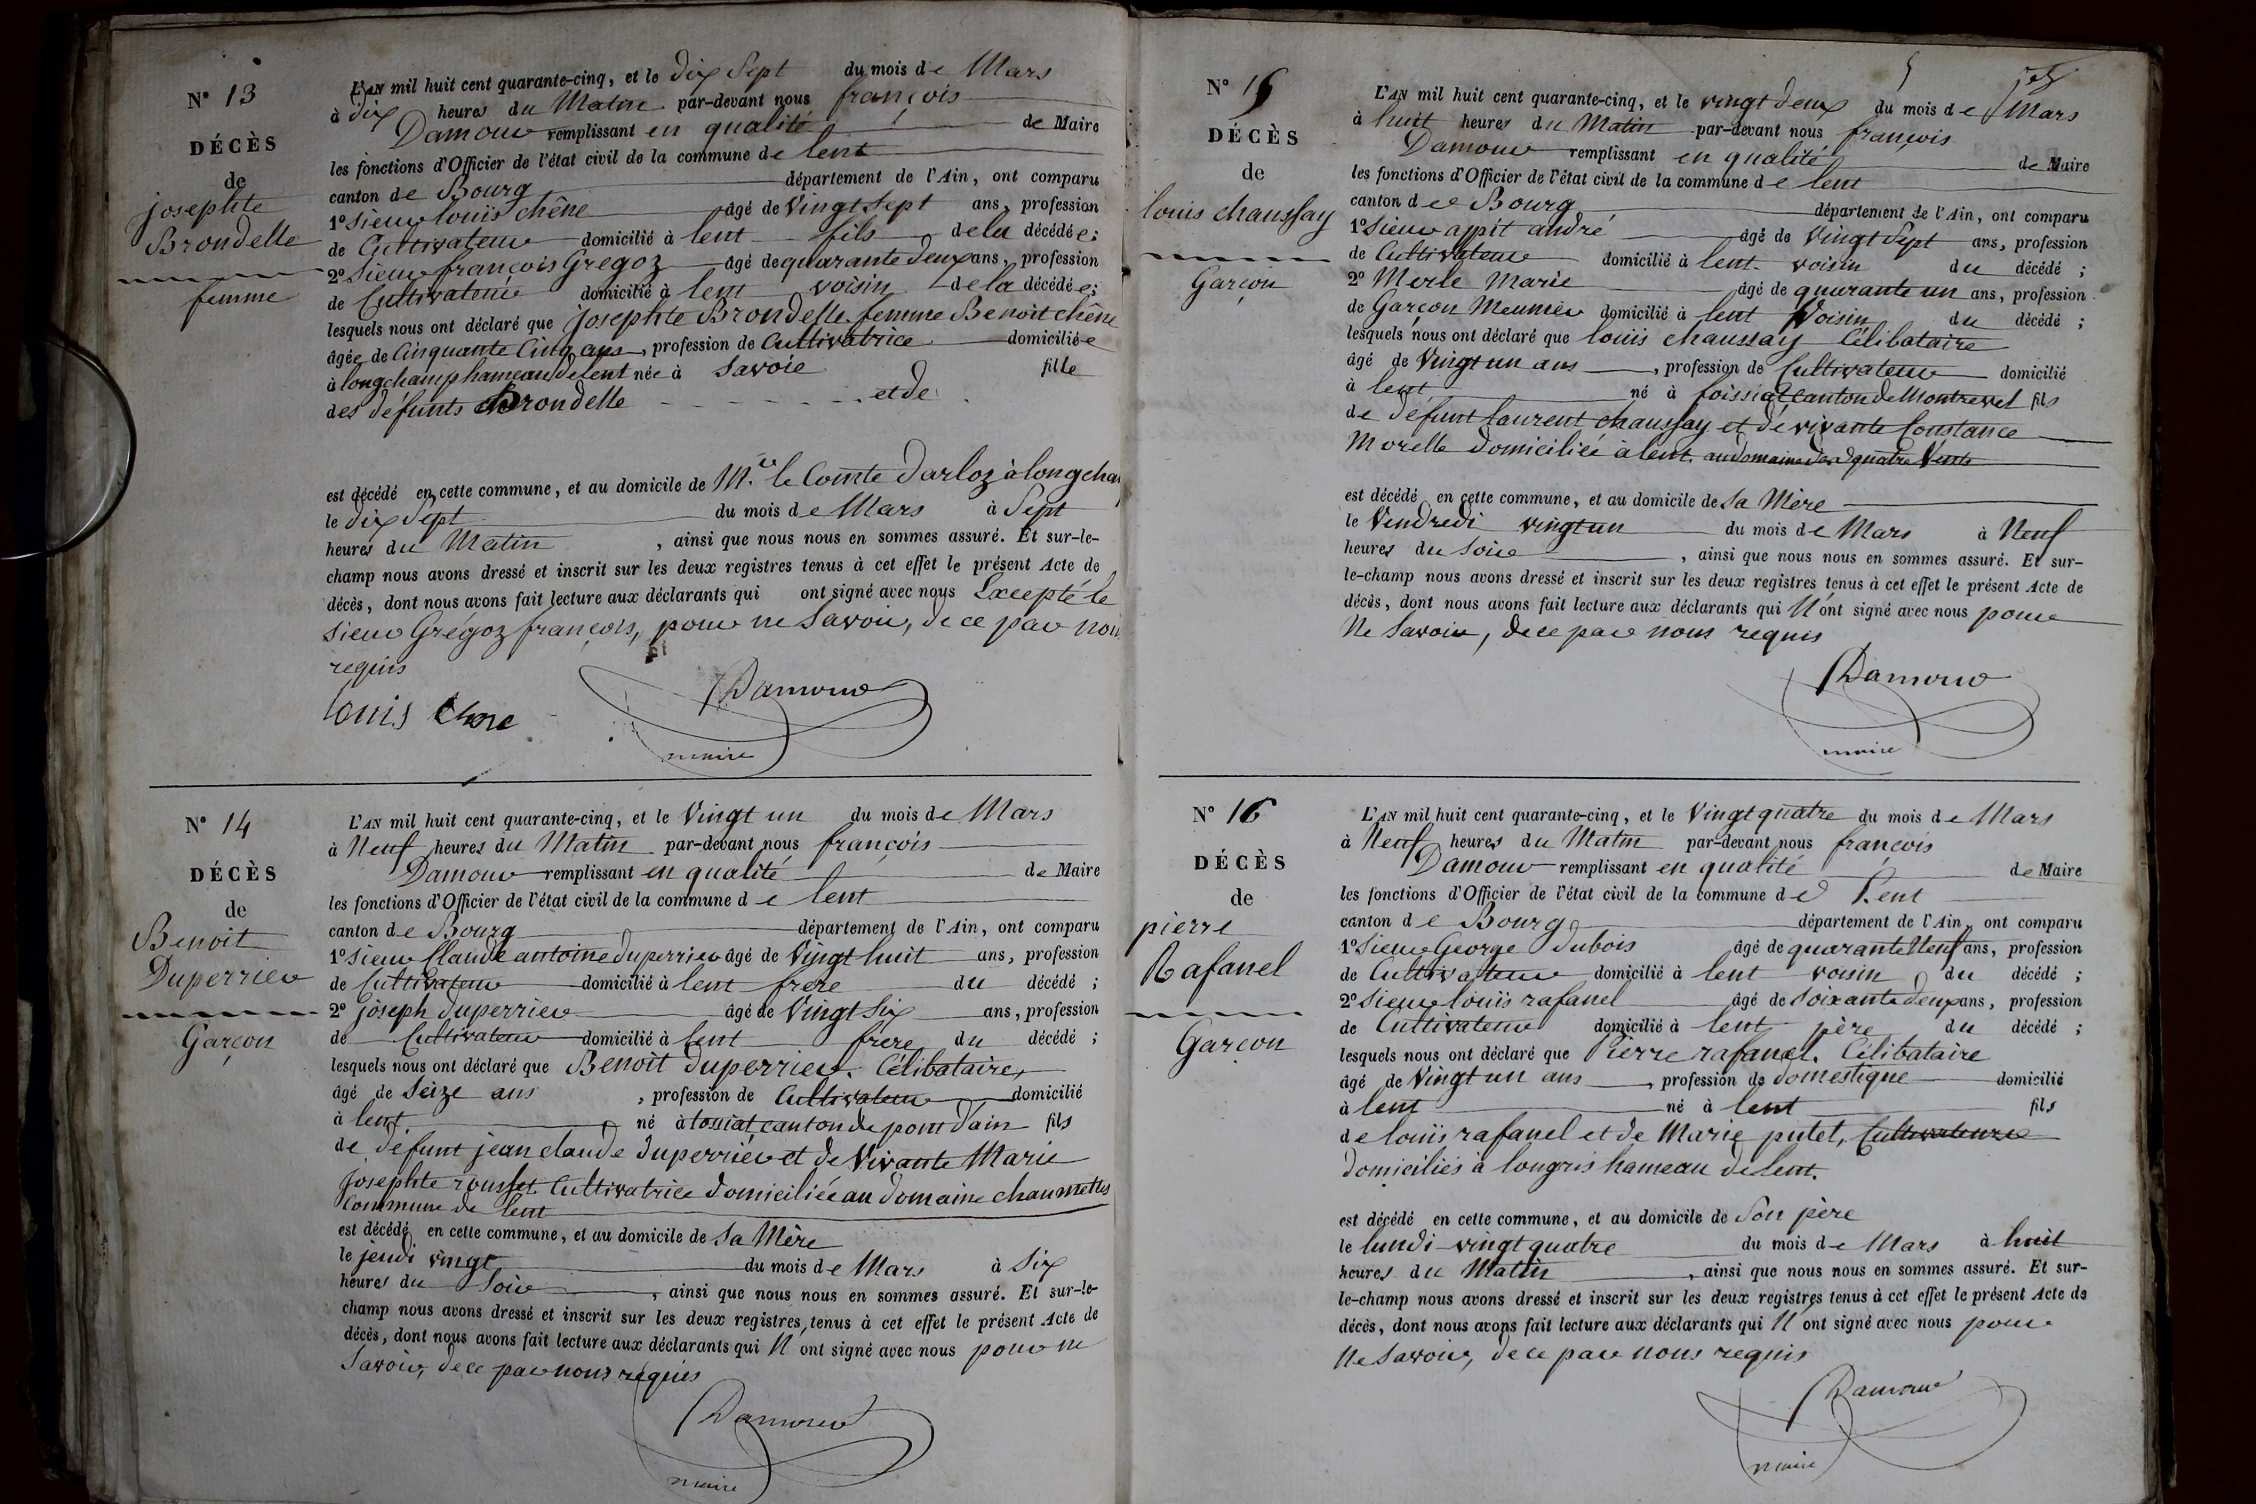 N° 13
DÉCÈS
de
josephte
Brondelle
femme
L'AN mil huit cent quarante-cinq, et le dix Sept du mois de Mars
à dix heures du Matin par-devant nous françois
Damour remplissant en qualité de Maire
les fonctions d'Officier de l'état civil de la commune de lent
canton de Bourg département de l'Ain, ont comparu
1° Sieur louis chêne âgé de Vingt Sept ans, profession
de Cultivateur domicilié à lent fils de la décédée;
2° Sieur françois Gregoz âgé de quarante deux ans, profession
de Cultivateur domicilié à lent voisin de la décédée;
lesquels nous ont déclaré que josephte Brondelle femme Benoit chêne
âgée de Cinquante Cinq ans, profession de Cultivatrice domiciliée
à longchamp hameau de lent née à Savoie fille
des défunts Brondelle et de
est décédé en cette commune, et au domicile de Mr le Comte Darloz à longcham
le dix Sept du mois de Mars à Sept
heures du Matin, ainsi que nous nous en sommes assuré. Et sur-le-
champ nous avons dressé et inscrit sur les deux registres tenus à cet effet le présent Acte de
décès, dont nous avons fait lecture aux déclarants qui ont signé avec nous Excepté le
Sieur Grégoz françois, pour ne Savoir, de ce par nous
requis
louis Chene Damour
maire
N° 14
DÉCÈS
de
Benoit
Duperrier
Garçon
L'AN mil huit cent quarante-cinq, et le Vingt un du mois de Mars
à Neuf heures du Matin par-devant nous françois
Damour remplissant en qualité de Maire
les fonctions d'Officier de l'état civil de la commune de lent
canton de Bourg département de l'Ain, ont comparu
1° Sieur Claude antoine duperrier âgé de Vingt huit ans, profession
de Cultivateur domicilié à lent frère du décédé;
2° joseph duperrier âgé de Vingt Six ans, profession
de Cultivateur domicilié à lent frere du décédé;
lesquels nous ont déclaré que Benoit duperrier. Célibataire,
âgé de Seize ans, profession de Cultivateur domicilié
à lent né à tossiat canton de pont dain fils
de défunt jean claude duperrier et de Vivante Marie
Josephte rousset Cultivatrice domiciliée au domaine chaumettes
Commune de lent
est décédé en cette commune, et au domicile de Sa Mère
le jeudi vingt du mois de Mars à Six
heures du Soir, ainsi que nous nous en sommes assuré. Et sur-le-
champ nous avons dressé et inscrit sur les deux registres tenus à cet effet le présent Acte de
décès, dont nous avons fait lecture aux déclarants qui N'ont signé avec nous pour ne
Savoir, de ce par nous requis
Damour
maire
5
N° 15
DÉCÈS
de
louis chaussay
Garçon
L'AN mil huit cent quarante-cinq, et le vingt deux du mois de Mars
à huit heures du Matin par-devant nous françois
Damour remplissant en qualité de Maire
les fonctions d'Officier de l'état civil de la commune de lent
canton de Bourg département de l'Ain, ont comparu
1° Sieur appit andré âgé de Vingt Sept ans, profession
de Cultivateur domicilié à lent voisin du décédé;
2° Merle Marie âgé de quarante un ans, profession
de Garçon Meunier domicilié à lent Voisin du décédé;
lesquels nous ont déclaré que louis chaussay Célibataire
âgé de Vingt un ans, profession de Cultivateur domicilié
à lent né à foissiat canton de Montrevel fils
de défunt laurent chaussay et de vivante Constance
Morelle domiciliée à lent au domaine des quatre Vents
est décédé en cette commune, et au domicile de Sa Mère
le Vendredi vingt un du mois de Mars à Neuf
heures du Soir, ainsi que nous nous en sommes assuré. Et sur-
le-champ nous avons dressé et inscrit sur les deux registres tenus à cet effet le présent Acte de
décès, dont nous avons fait lecture aux déclarants qui N'ont signé avec nous pour
Ne Savoir, de ce par nous requis
Damour
maire
N° 16
DÉCÈS
de
pierre
Rafanel
Garçon
L'AN mil huit cent quarante-cinq, et le Vingt quatre du mois de Mars
à Neuf heures du Matin par-devant nous françois
Damour remplissant en qualité de Maire
les fonctions d'Officier de l'état civil de la commune de lent
canton de Bourg département de l'Ain, ont comparu
1° Sieur George dubois âgé de quarante Neuf ans, profession
de Cultivateur domicilié à lent voisin du décédé;
2° Sieur louis rafanel âgé de Soixante deux ans, profession
de Cultivateur domicilié à lent père du décédé;
lesquels nous ont déclaré que Pierre rafanel. Célibataire
âgé de Vingt un ans, profession de domestique domicilié
à lent né à lent fils
de louis rafanel et de Marie putet, Cultivateurs
domiciliés à longris hameau de lent.
est décédé en cette commune, et au domicile de Son père
le lundi vingt quatre du mois de Mars à huit
heures du Matin, ainsi que nous nous en sommes assuré. Et sur-
le-champ nous avons dressé et inscrit sur les deux registres tenus à cet effet le présent Acte de
décès, dont nous avons fait lecture aux déclarants qui N'ont signé avec nous pour
Ne Savoir, de ce par nous requis
Damour
maire